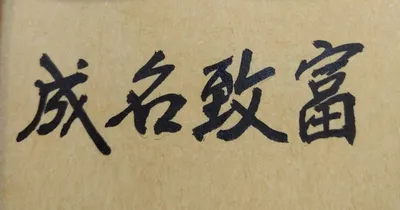 成名致富